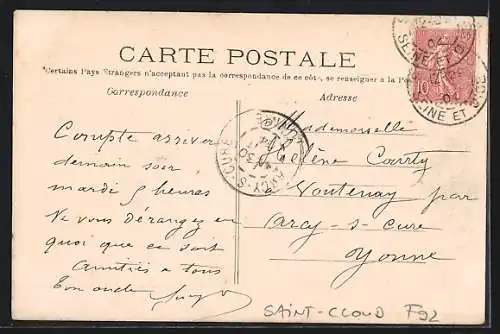 CARTE POSTALE
Certains Pays Etrangers n'acceptant pas la correspondance de ce côté, se renseigner à la Po
Correspondance
Adresse
Compte arriver
demain soir
mardi 5 heures
Ne vous dérangez en
quoi que ce soit
Amitiés a tous
Ton oncle
Mademoiselle
Hélène
à Voutenay par
Arcy-s-cure
Yonne
10
SEINE ET OISE
SEINE ET OISE
ARCY-S-CURE
SAINT-CLOUD F92